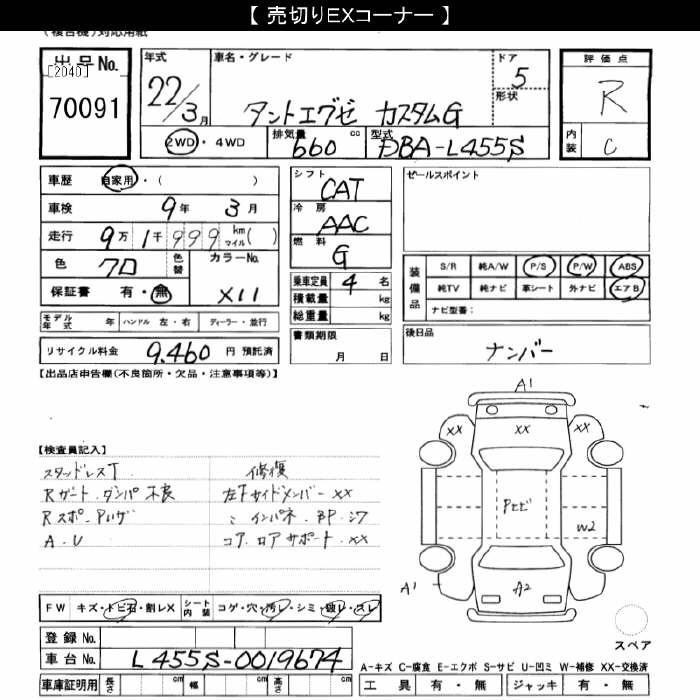 【 売切りEXコーナー 】
(複合機)対応用紙
出品No.
[2040]
70091
年式
22/3月
車名・グレード
タントエグゼ カスタムG
ドア
5
形状
評価点
R
内装
C
2WD・4WD
排気量
660 cc
型式
DBA-L455S
車歴 自家用・( )
車検 9年 3月
走行 9万 1千 999 km マイル( )
色 クロ
色替
カラーNo.
X11
保証書 有・無
シフト
CAT
冷房
AAC
燃料
G
乗車定員 4 名
積載量 kg
総重量 kg
セールスポイント
装備品
S/R 純A/W P/S P/W ABS
純TV 純ナビ 革シート 外ナビ エアB
ナビ型番:
モデル年式 年 ハンドル 左・右 ディーラー・並行
書類期限
月 日
後日品
ナンバー
リサイクル料金 9.460 円 預託済
【出品店申告欄(不良箇所・欠品・注意事項等)】
A1
XX XX XX
【検査員記入】
スタッドレスT
Rゲート.ダンパ不良
Rスポ.
A.U
修復
左Fサイドメンバー XX
〃 インパネ.
コア.ロアサポート.XX
W2
A1
A2
FW キズ・トビ石・割レX シート内装 コゲ・穴・汚レ・シミ・破レ・スレ
スペア
登録No.
車台No. L455S-0019674
A-キズ C-腐食 E-エクボ S-サビ U-凹ミ W-補修 XX-交換済
車庫証明用 長さ cm 幅 cm 高さ cm
工具 有・無 ジャッキ 有・無